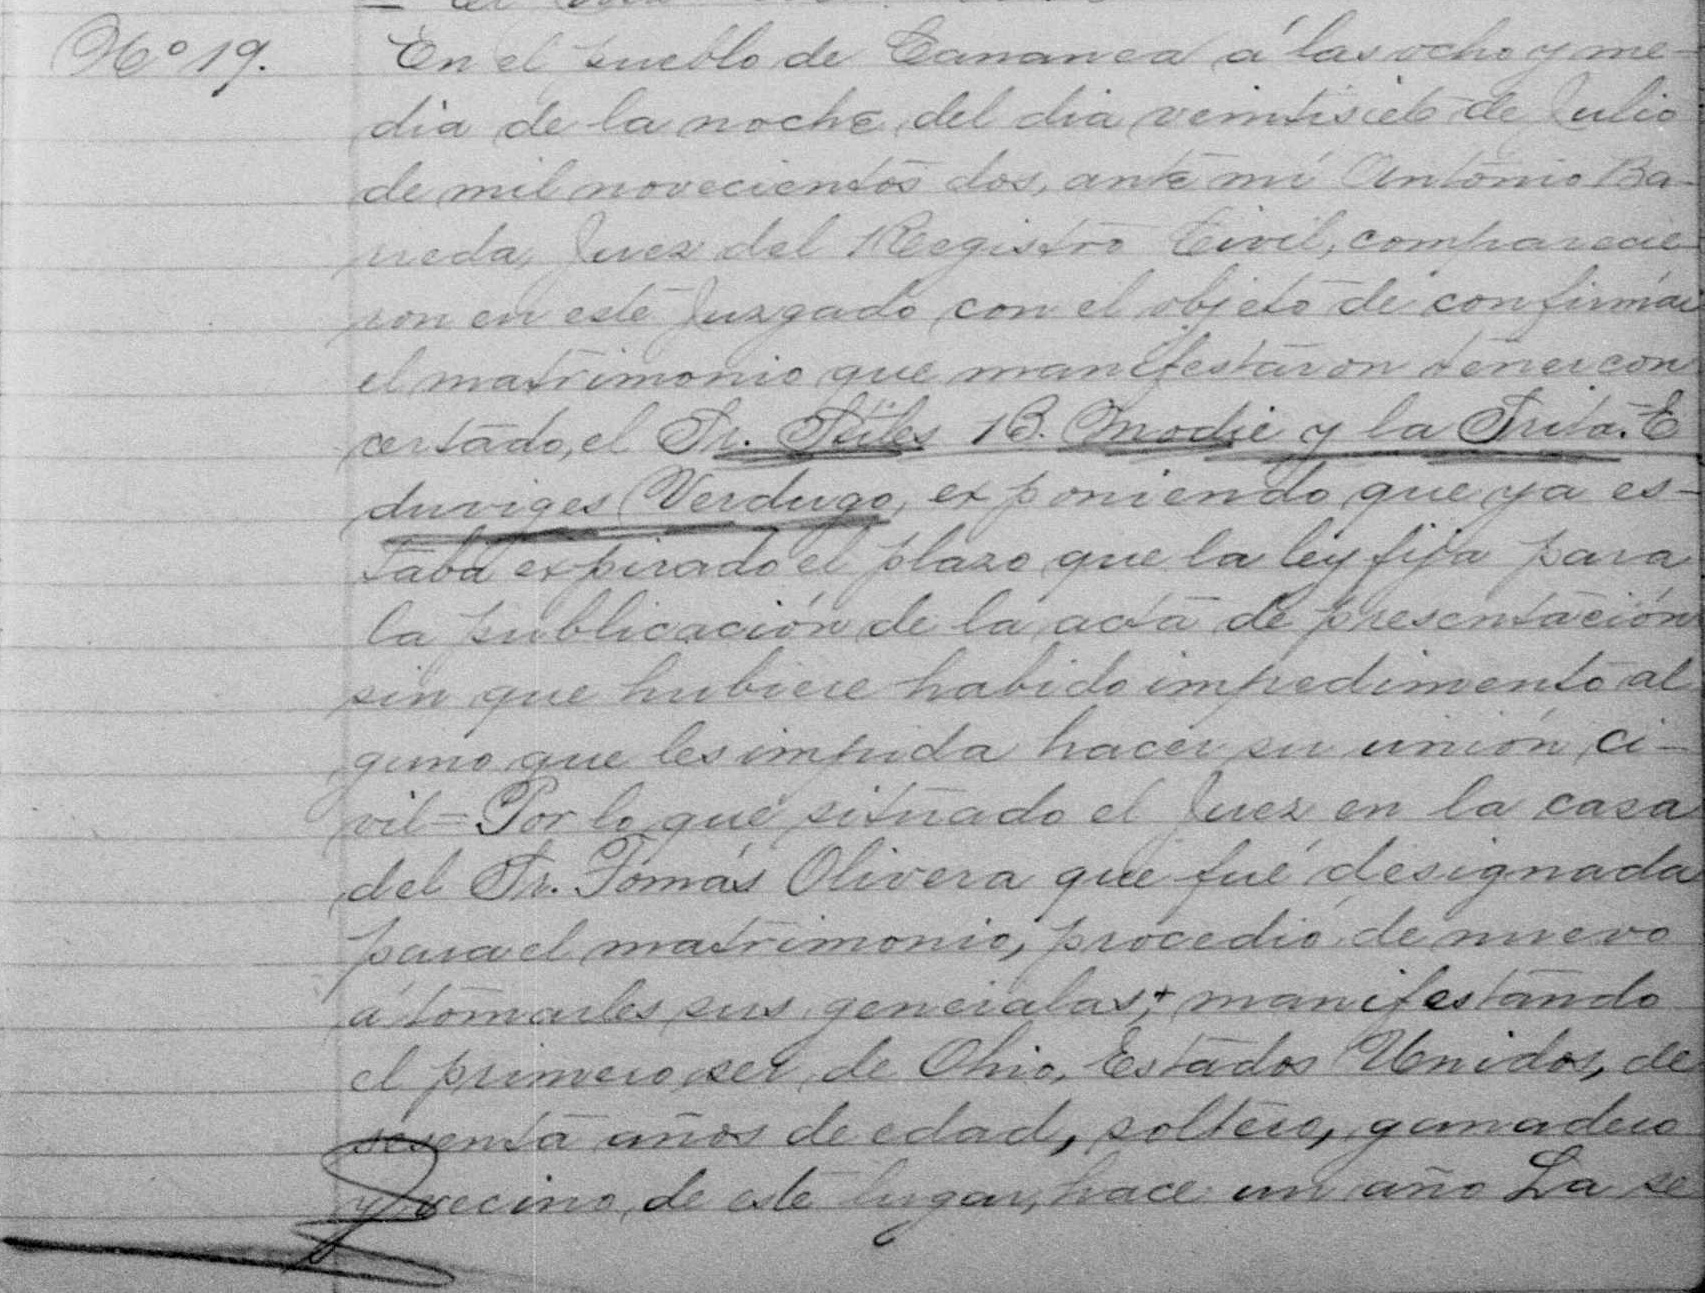 Nº 19. En el pueblo de Cananea á las ocho y me-
dia de la noche, del dia veintisiete de Julio
de mil novecientos dos, ante mi Antonio Ba-
rreda, Juez del Registro Civil, comparecie-
ron en este Juzgado con el objeto de confirmar
el matrimonio que manifestaron tener con
certado, el Sr. Stiles B. Modie y la Srita. E
duviges Verdugo, exponiendo que ya es-
taba expirado el plazo que la ley fija para
la publicación de la acta de presentación
sin que hubiere habido impedimento al
guno que les impida hacer su unión ci-
vil= Por lo que situado el Juez en la casa
del Sr. Tomás Olivera que fué designada
para el matrimonio, procedió de nuevo
á tomarles sus generalas, manifestando
el primero ser de Ohio, Estados Unidos, de
años de edad, soltero, ganadero
y vecino de este lugar, hace un año La se